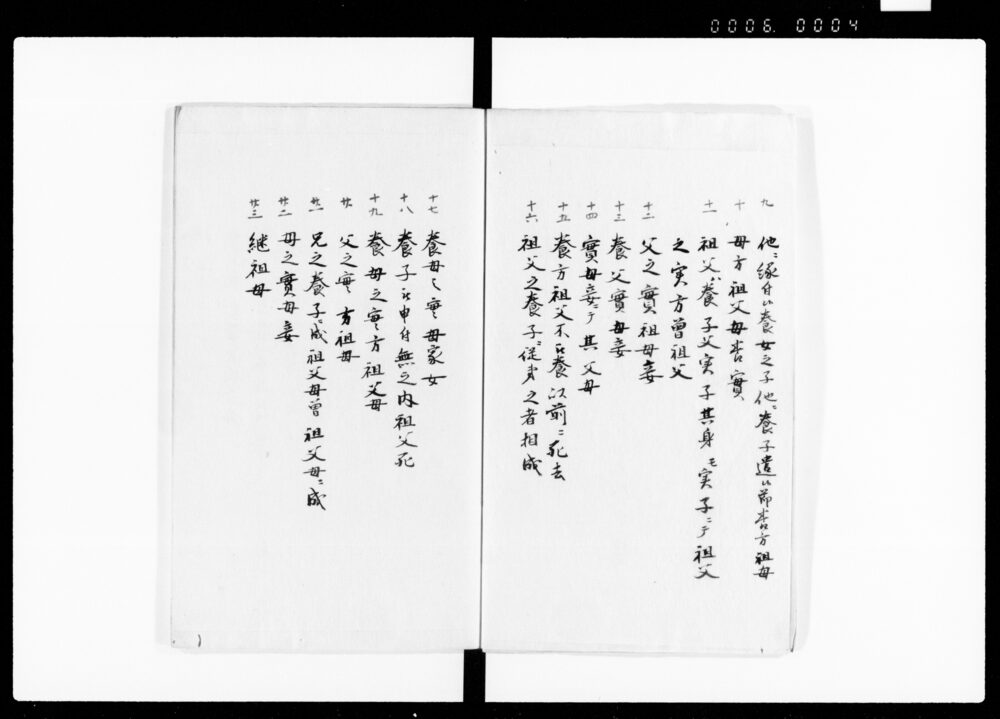 0006.0004
九 他ニ縁付候養女之子他ニ養子遣候節養方祖母
十 母方祖父母養實
十一 祖父ハ養子父実子其身モ実子ニテ祖父
之実方曽祖父
十二 父之實祖母妾
十三 養父實母妾
十四 實母妾ニテ其父母
十五 養方祖父不被養以前ニ死去
十六 祖父之養子ニ従弟之者相成
十七 養母之實母家女
十八 養子被申付無之内祖父死
十九 養母之實方祖父母
廿 父之實方祖母
廿一 兄之養子ニ成祖父母曽祖父母ニ成
廿二 母之實母妾
廿三 継祖母